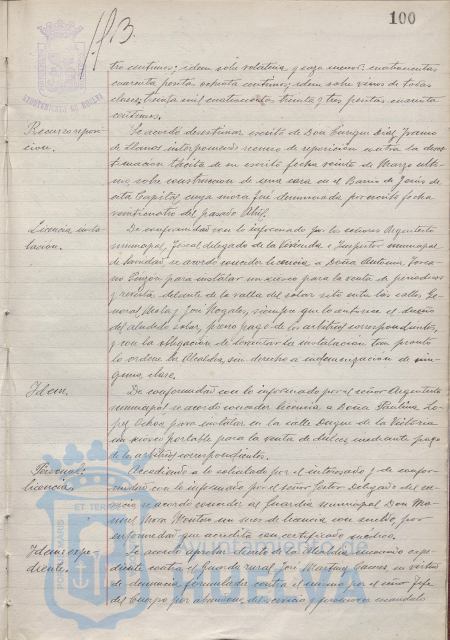 100
AYUNTAMIENTO DE HUELVA
tro centimos; idem sobre volateria y caza menor: cuatrocientas
cuarenta pesetas ochenta centimos; idem sobre vinos de todas
clases, treinta mil cuatrocientas treinta y tres pesetas cuarenta
centimos.
Recurso reposicion.
Se acordó desestimar escrito de Don Enrique Diaz Franco
de Llanos, interponiendo recurso de reposicion contra la
tacita de su escrito fecha veinte de Marzo
sobre construccion de una casa en el Barrio de
esta Capital, cuya mora fué denunciada por escrito fecha
veinticuatro del pasado Abril.
Licencia instalación.
De conformidad con lo informado por los señores Arquitecto
municipal, Fiscal delegado de la Vivienda e Inspector municipal
de Sanidad se acordó conceder licencia a Doña Antonia
Pinzón para instalar un kiosco para la venta de periodicos
y revistas, delante de la valla del solar sito entre las calles
General Mola y José Nogales, siempre que lo autorice el dueño
del aludido solar, previo pago de los arbitrios correspondientes,
y con la obligación de levantar la instalacion tan pronto
lo ordene la Alcaldia, sin derecho a indemnización de ninguna
clase.
Idem.
De conformidad con lo informado por el señor Arquitecto
municipal se acordó conceder licencia a Doña Paulina Lopez
Ochoa para instalar en la calle Duque de la Victoria
un kiosco portable para la venta de dulces mediante pago
de los arbitrios correspondientes.
Personal: licencias.
Accediendo a lo solicitado por el interesado y de conformidad
con lo informado por el señor Gestor Delegado del
se acordó conceder al Guardia municipal Don Manuel
Mora Montes un mes de licencia con sueldo por
enfermedad que acredita con certificado medico.
Idem: expediente.
Se acordó aprobar Decreto de la Alcaldia incoando expediente
contra el Guarda rural José Martinez Caceres en virtud
de denuncia formulada contra el mismo por el señor Jefe
del Cuerpo por abandono del servicio y promover escandalo
Ayuntamiento de
HUELVA